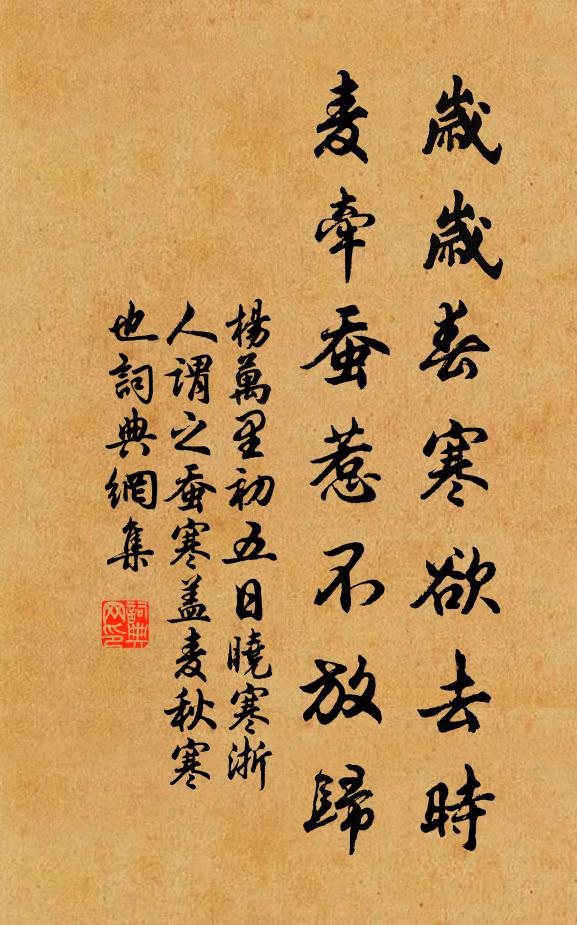 歲歲春寒欲去時
麦牽蚕惹不放歸
楊萬里初五日曉寒浙
人謂之蚕寒盖麦秋寒
也詞典網集
詞典网印